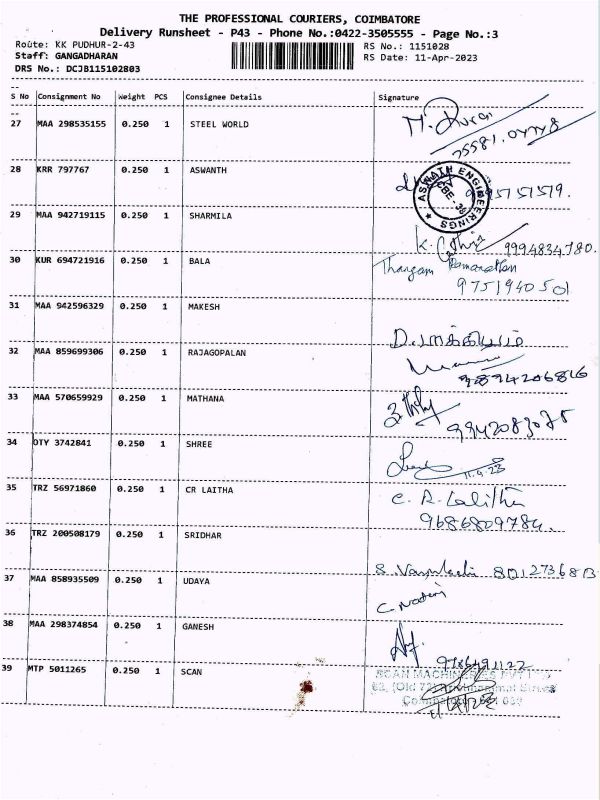 THE PROFESSIONAL COURIERS, COIMBATORE
Delivery Runsheet - P43 - Phone No.:0422-3505555 - Page No.:3
Route: KK PUDHUR-2-43 RS No.: 1151028
Staff: GANGADHARAN RS Date: 11-Apr-2023
DRS No.: DCJB115102803
S No Consignment No Weight PCS Consignee Details Signature
27 MAA 298535155 0.250 1 STEEL WORLD
28 KRR 797767 0.250 1 ASWANTH
ASWATH ENGINEERINGS
29 MAA 942719115 0.250 1 SHARMILA
9994834780.
30 KUR 694721916 0.250 1 BALA Thangam
9751940501
31 MAA 942596329 0.250 1 MAKESH
32 MAA 859699306 0.250 1 RAJAGOPALAN
9894206816
33 MAA 570659929 0.250 1 MATHANA
34 OTY 3742841 0.250 1 SHREE
11.4.23
35 TRZ 56971860 0.250 1 CR LAITHA C. R. Lalitha
9686809784.
36 TRZ 200508179 0.250 1 SRIDHAR
37 MAA 858935509 0.250 1 UDAYA
38 MAA 298374854 0.250 1 GANESH
39 MTP 5011265 0.250 1 SCAN